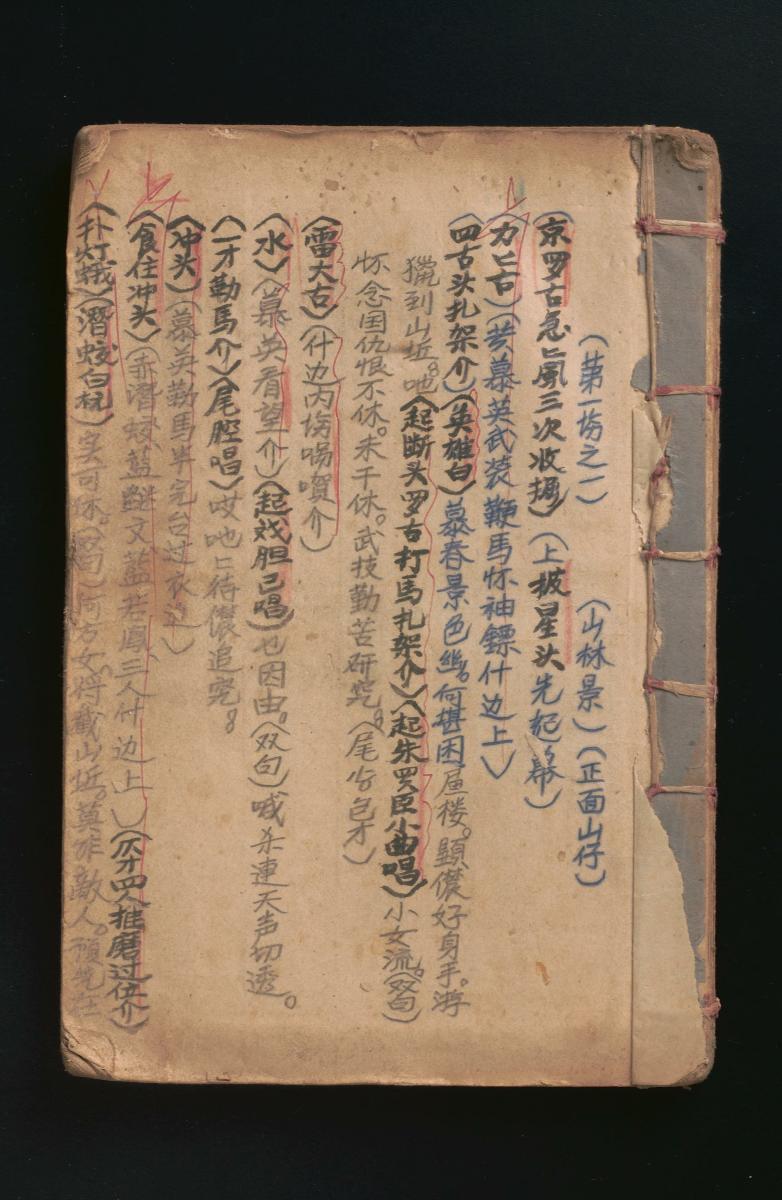 （第一场之一）　（山林景）（正面山仔）
（京罗古急匕風三次收掘）（上披星头先起幕）
（力匕古）（苦慕英武装鞭馬怀袖鏢什边上）
（四古头扎架介）（英雄白）慕春景色幽。何堪困屈楼。顕儂好身手。游
獵到山坵。吔（起断头罗古打馬扎架介）（起朱买臣小曲唱）小女流。（双句）
怀念国仇恨不休。未干休。武技勤苦研究。（尾公包才）
（雷大古）（什边内场喝賀介）
（水）（慕英看望介）（起戏胆己唱）乜因由。（双句）喊杀連天声切透。
（一才勒馬介）（尾腔唱）哎吔匕待儂追究。
（冲头）（慕英勒馬半完台过衣边）
（食住冲头）（赤潛蛟藍継文藍若鳳三人什边上）（仄才四人推磨过位介）
（扑灯蛾）（潛蛟白杬）实可怀。（双句）何方女将截山坵。莫非敵人。預先在